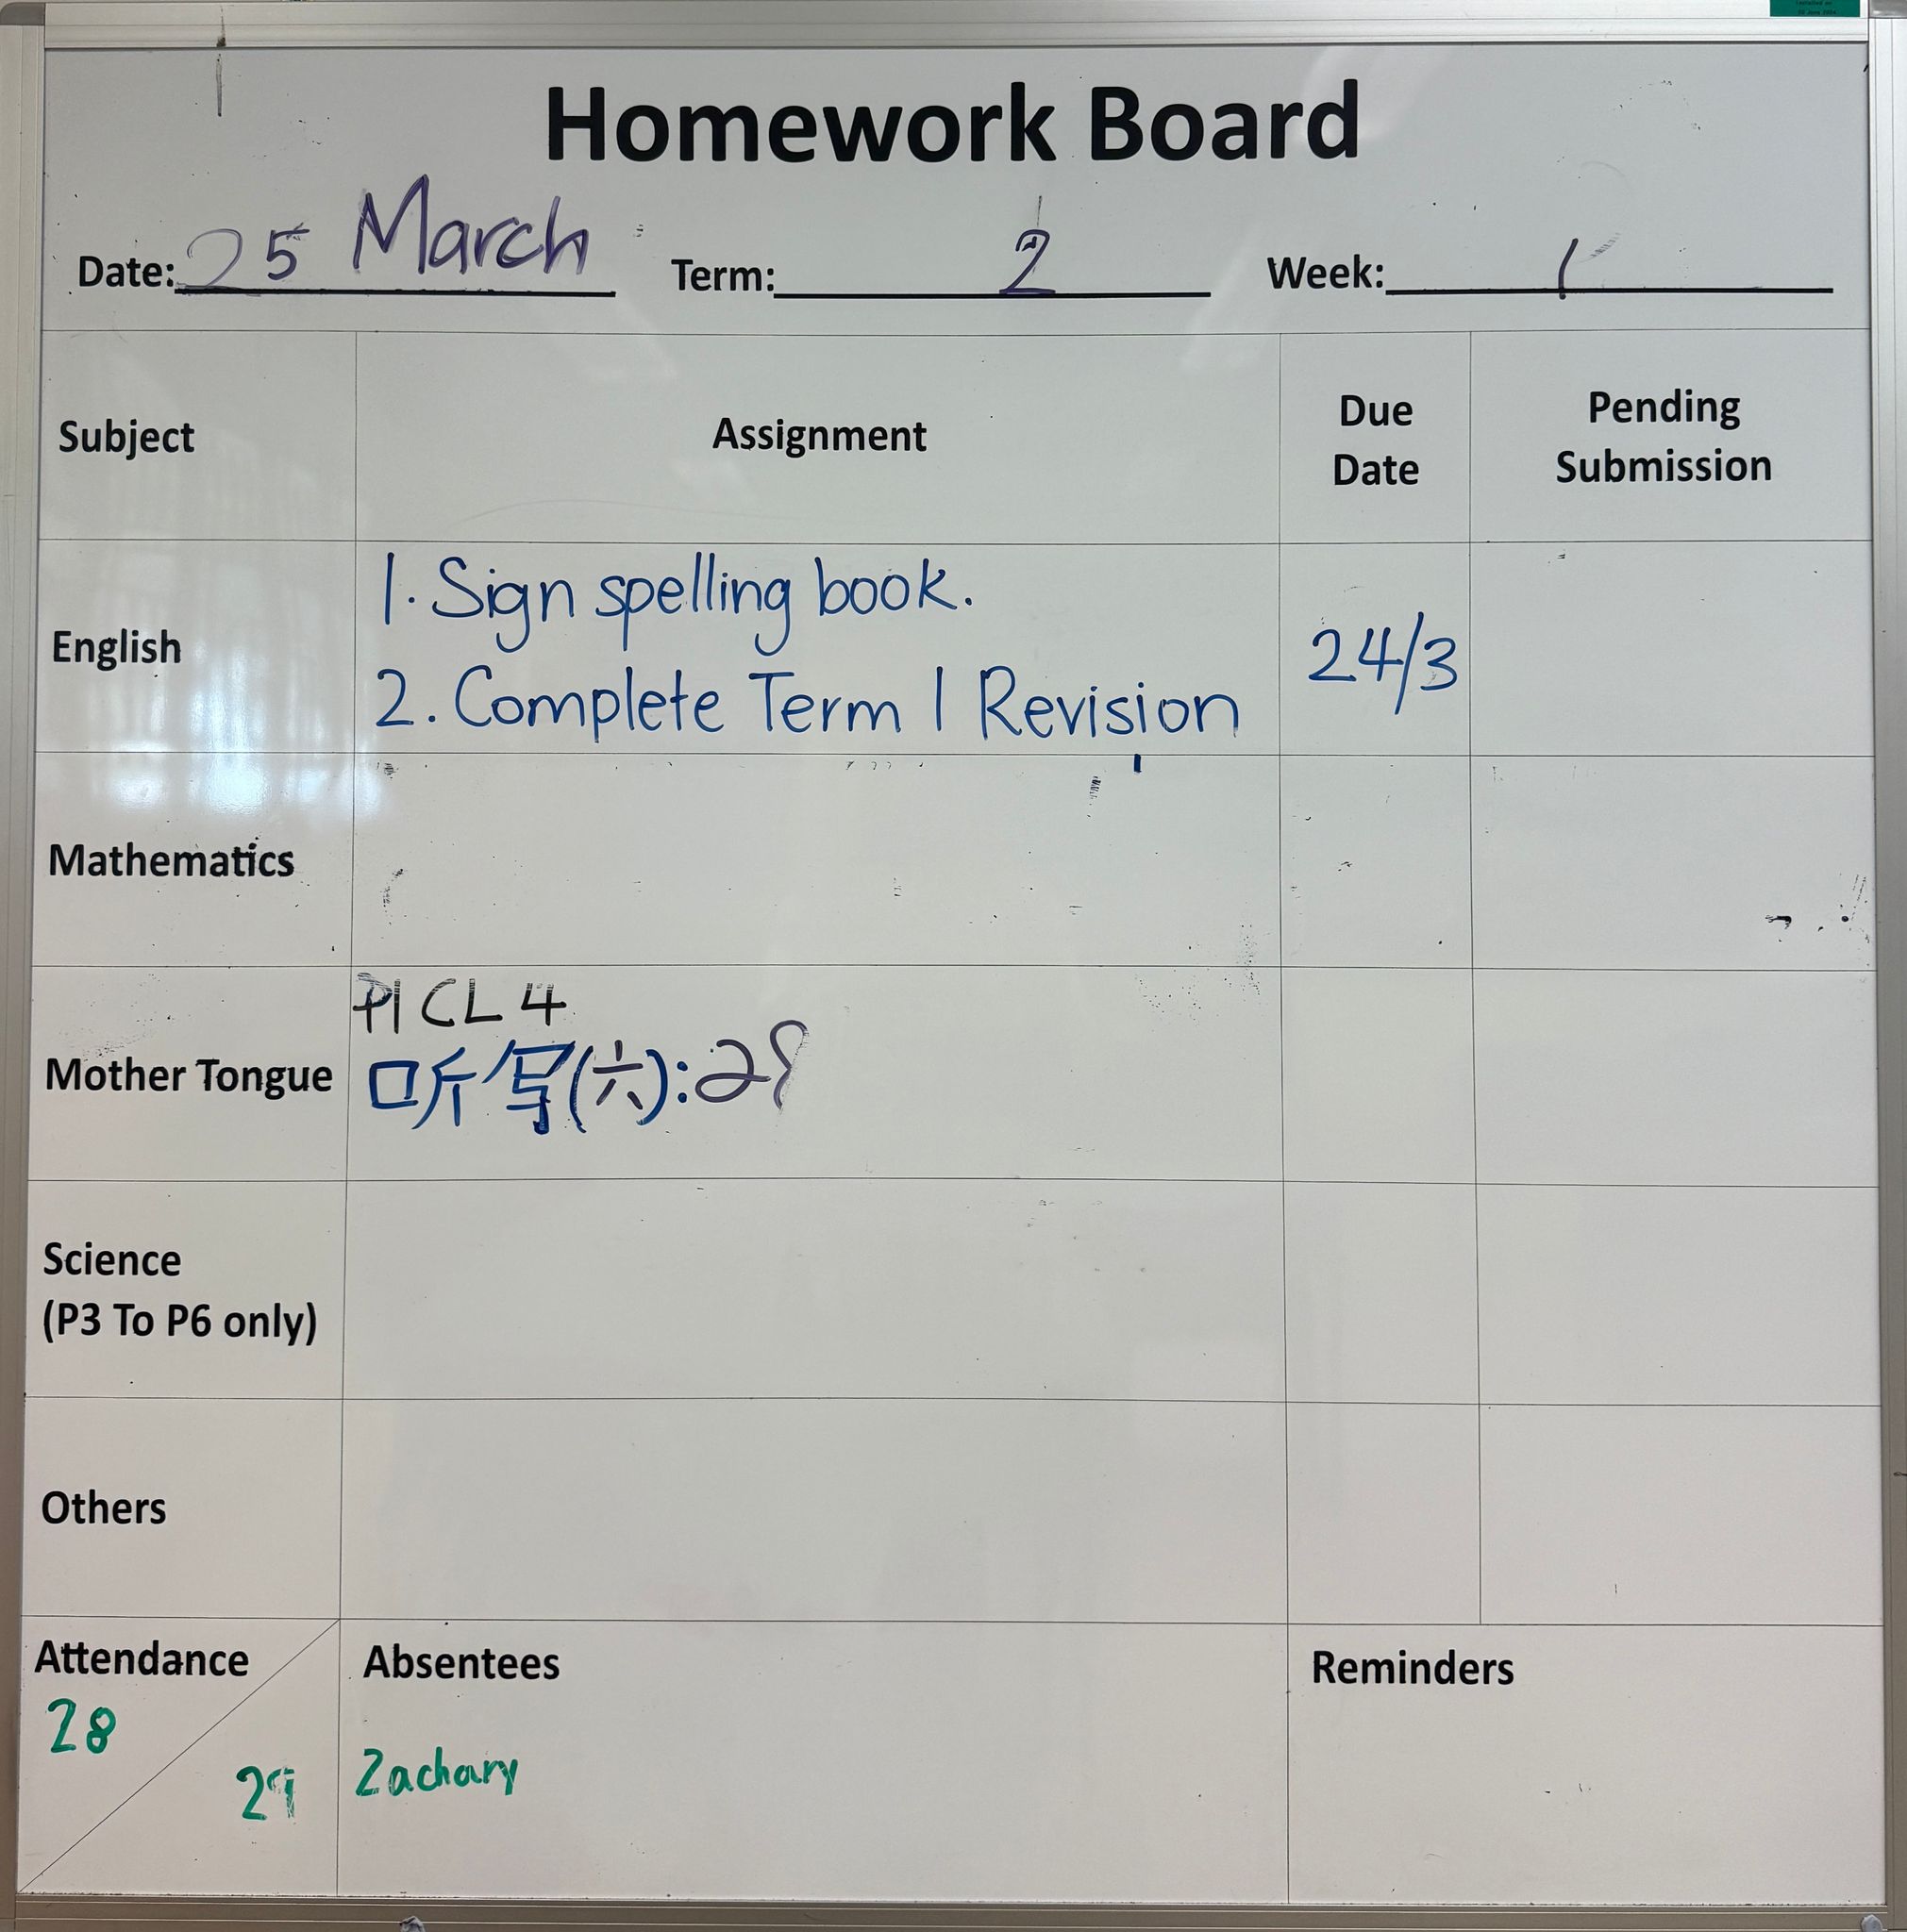 Homework Board
Date: 25 March Term: 2 Week: 1
Subject Assignment Due Date Pending Submission
English
1. Sign spelling book.
2. Complete Term 1 Revision
24/3
Mathematics
Mother Tongue
P1 CL 4
听写(六):28
Science
(P3 To P6 only)
Others
Attendance
28
29
Absentees
Zachary
Reminders